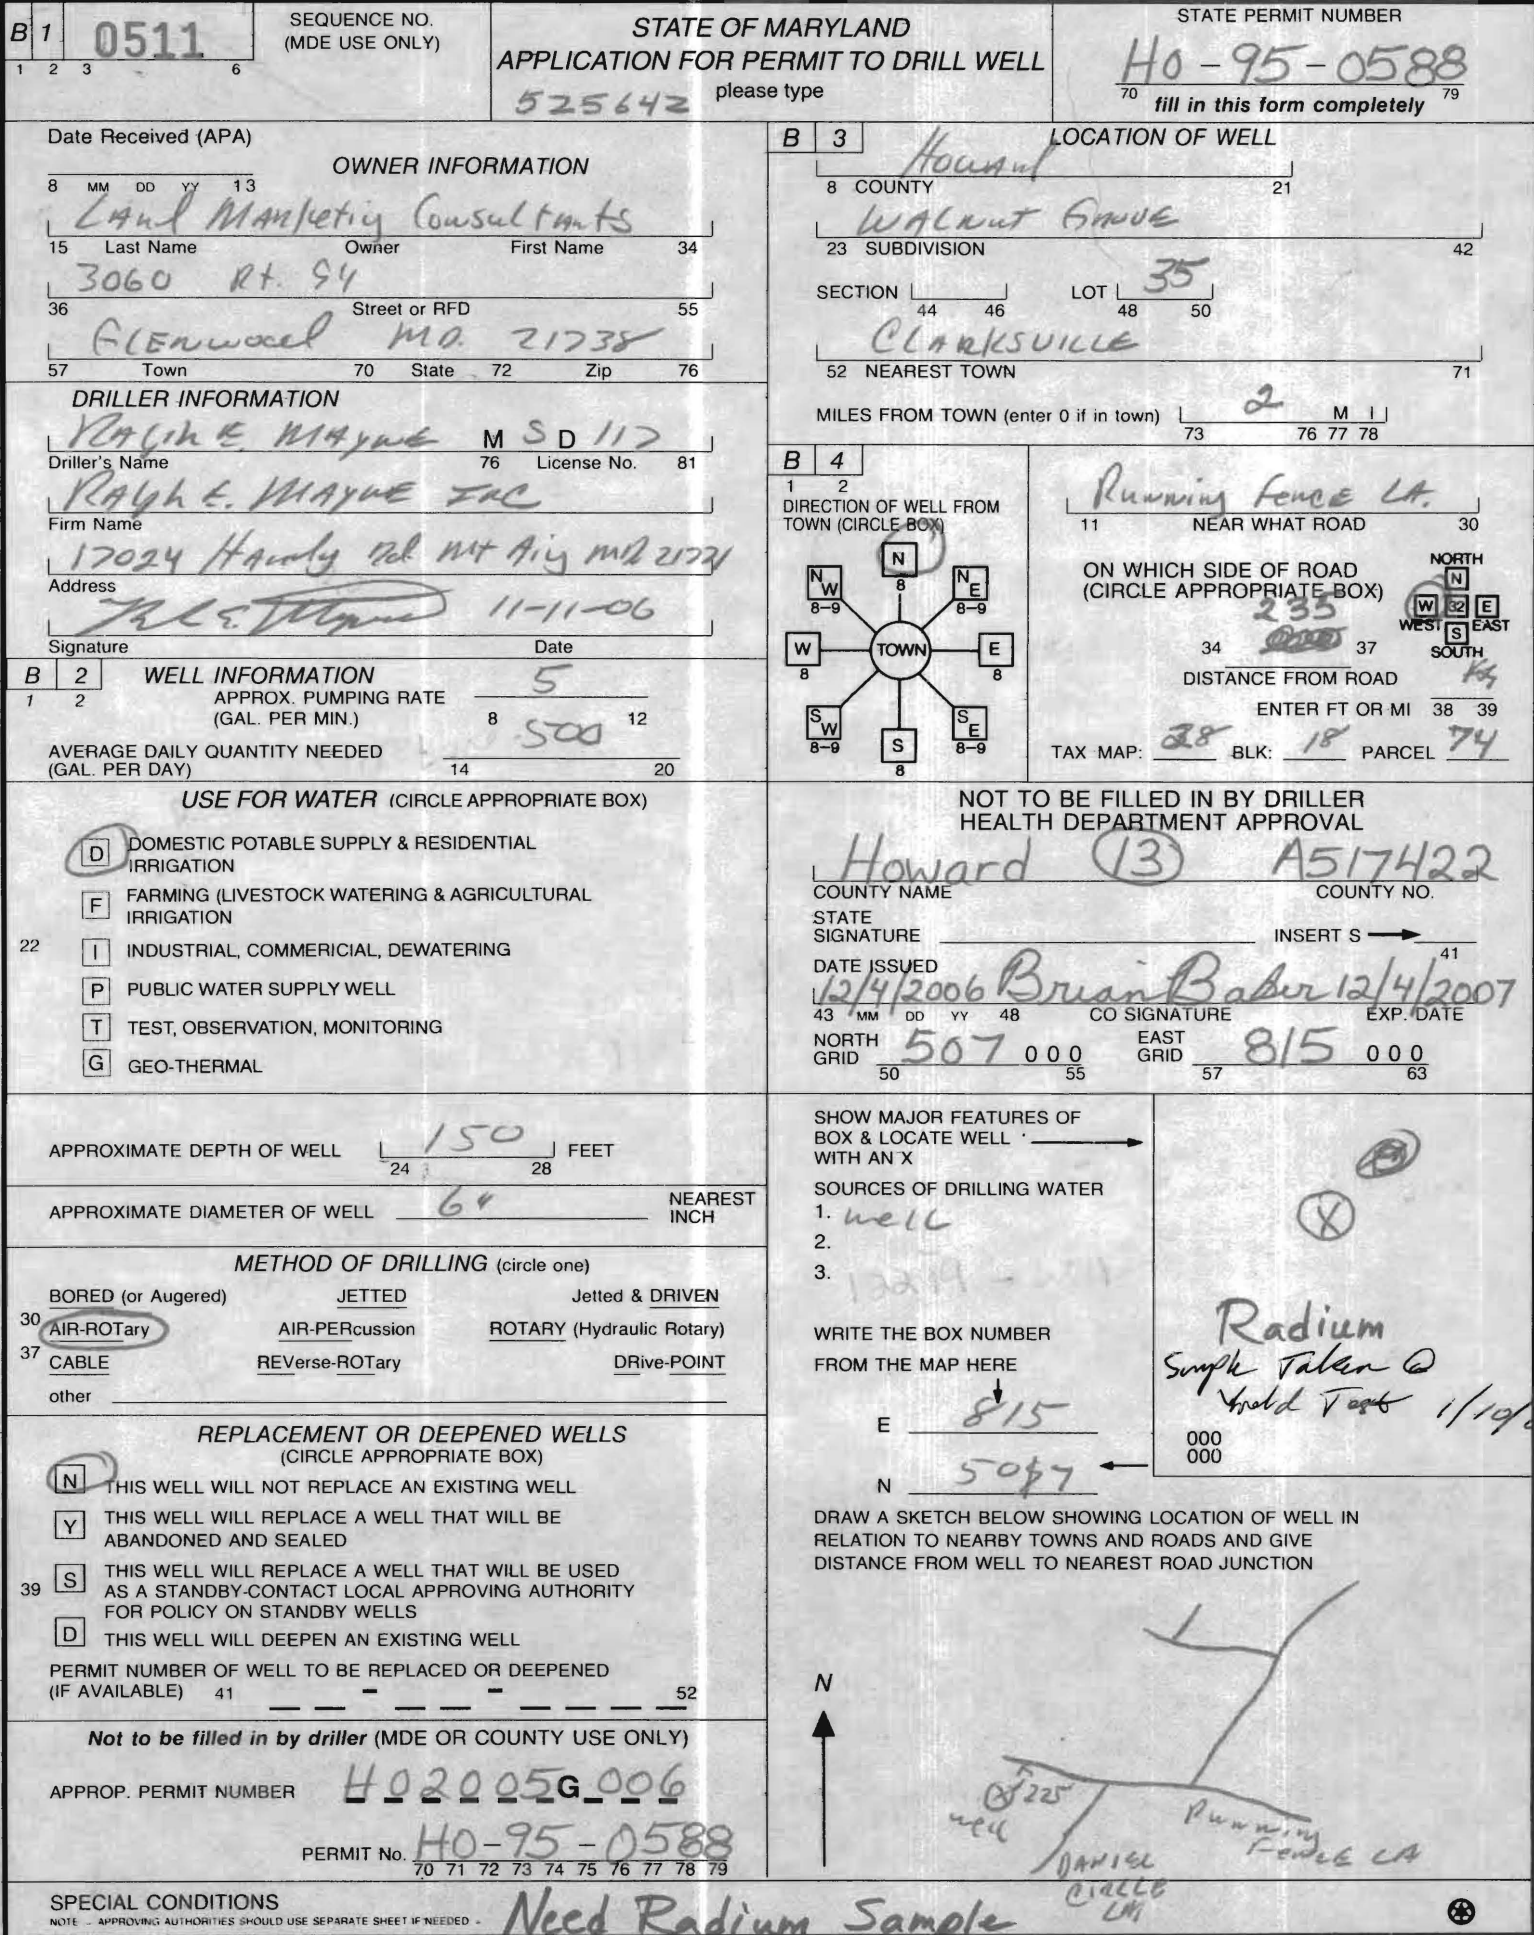 B 1 0511
1 2 3 6
SEQUENCE NO.
(MDE USE ONLY)
STATE OF MARYLAND
APPLICATION FOR PERMIT TO DRILL WELL
please type
525642
STATE PERMIT NUMBER
HO-95-0588
70 79
fill in this form completely
Date Received (APA)
OWNER INFORMATION
8 MM DD YY 13
Land Marketing Consultants
15 Last Name Owner First Name 34
3060 Rt. 94
36 Street or RFD 55
Glenwood MD. 21738
57 Town 70 State 72 Zip 76
DRILLER INFORMATION
Ralph E. Mayne M S D 117
Driller's Name 76 License No. 81
Ralph E. Mayne Inc
Firm Name
17024 Hardy Rd Mt Airy MD 21771
Address
11-11-06
Signature Date
B 2 WELL INFORMATION
1 2
APPROX. PUMPING RATE
(GAL. PER MIN.) 5
8 12
AVERAGE DAILY QUANTITY NEEDED
(GAL. PER DAY) 500
14 20
USE FOR WATER (CIRCLE APPROPRIATE BOX)
D DOMESTIC POTABLE SUPPLY & RESIDENTIAL
IRRIGATION
F FARMING (LIVESTOCK WATERING & AGRICULTURAL
IRRIGATION
22 I INDUSTRIAL, COMMERICIAL, DEWATERING
P PUBLIC WATER SUPPLY WELL
T TEST, OBSERVATION, MONITORING
G GEO-THERMAL
APPROXIMATE DEPTH OF WELL 150 FEET
24 28
APPROXIMATE DIAMETER OF WELL 6" NEAREST
INCH
METHOD OF DRILLING (circle one)
BORED (or Augered) JETTED Jetted & DRIVEN
30 AIR-ROTary AIR-PERcussion ROTARY (Hydraulic Rotary)
37 CABLE REVerse-ROTary DRive-POINT
other
REPLACEMENT OR DEEPENED WELLS
(CIRCLE APPROPRIATE BOX)
N THIS WELL WILL NOT REPLACE AN EXISTING WELL
Y THIS WELL WILL REPLACE A WELL THAT WILL BE
ABANDONED AND SEALED
39 S THIS WELL WILL REPLACE A WELL THAT WILL BE USED
AS A STANDBY-CONTACT LOCAL APPROVING AUTHORITY
FOR POLICY ON STANDBY WELLS
D THIS WELL WILL DEEPEN AN EXISTING WELL
PERMIT NUMBER OF WELL TO BE REPLACED OR DEEPENED
(IF AVAILABLE) 41 - - 52
Not to be filled in by driller (MDE OR COUNTY USE ONLY)
APPROP. PERMIT NUMBER HO2005G006
PERMIT No. HO-95-0588
70 71 72 73 74 75 76 77 78 79
SPECIAL CONDITIONS
NOTE - APPROVING AUTHORITIES SHOULD USE SEPARATE SHEET IF NEEDED -
Need Radium Sample
B 3 LOCATION OF WELL
Howard
8 COUNTY 21
Walnut Grove
23 SUBDIVISION 42
SECTION LOT 35
44 46 48 50
CLARKSVILLE
52 NEAREST TOWN 71
MILES FROM TOWN (enter 0 if in town) 2 M I
73 76 77 78
B 4
1 2
DIRECTION OF WELL FROM
TOWN (CIRCLE BOX)
N
8
NW NE
8-9 8-9
W TOWN E
8 8
SW SE
8-9 8-9
S
8
Running Fence LA.
11 NEAR WHAT ROAD 30
ON WHICH SIDE OF ROAD
(CIRCLE APPROPRIATE BOX)
NORTH
N
W 32 E
WEST EAST
S
SOUTH
235
34 37
DISTANCE FROM ROAD
ENTER FT OR MI 38 39
TAX MAP: 28 BLK: 18 PARCEL 74
NOT TO BE FILLED IN BY DRILLER
HEALTH DEPARTMENT APPROVAL
Howard 13 A517422
COUNTY NAME COUNTY NO.
STATE
SIGNATURE INSERT S
41
DATE ISSUED
12/4/2006 Brian Baker 12/4/2007
43 MM DD YY 48 CO SIGNATURE EXP. DATE
NORTH
GRID 507 000
50 55
EAST
GRID 815 000
57 63
SHOW MAJOR FEATURES OF
BOX & LOCATE WELL
WITH AN X
SOURCES OF DRILLING WATER
1. well
2.
3.
WRITE THE BOX NUMBER
FROM THE MAP HERE
E 815
N 507
X
Radium
Sample Taken @
Yield Test 1/10/
000
000
DRAW A SKETCH BELOW SHOWING LOCATION OF WELL IN
RELATION TO NEARBY TOWNS AND ROADS AND GIVE
DISTANCE FROM WELL TO NEAREST ROAD JUNCTION
N
X 225
well
Running
Fence LA
DANIEL
CIRCLE
LN